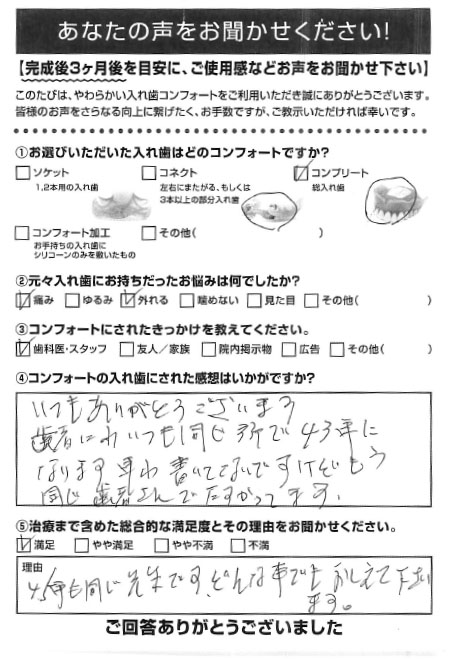 あなたの声をお聞かせください!
【完成後3ヶ月後を目安に、ご使用感などお声をお聞かせ下さい】
このたびは、やわらかい入れ歯コンフォートをご利用いただき誠にありがとうございます。
皆様のお声をさらなる向上に繋げたく、お手数ですが、ご教示いただければ幸いです。
①お選びいただいた入れ歯はどのコンフォートですか?
ソケット
1,2本用の入れ歯
コネクト
左右にまたがる、もしくは
3本以上の部分入れ歯
コンプリート
総入れ歯
コンフォート加工
お手持ちの入れ歯に
シリコーンのみを敷いたもの
その他( )
②元々入れ歯にお持ちだったお悩みは何でしたか?
痛み ゆるみ 外れる 噛めない 見た目 その他( )
③コンフォートにされたきっかけを教えてください。
歯科医・スタッフ 友人／家族 院内掲示物 広告 その他( )
④コンフォートの入れ歯にされた感想はいかがですか?
いつもありがとうございます
歯者にわいつも同じ所で43年に
なります 書いてないですけども
同じ歯者さんでたすかってます。
⑤治療まで含めた総合的な満足度とその理由をお聞かせください。
満足 やや満足 やや不満 不満
理由
も同じ先生です、どんな事でもおしえて下さい
ます。
ご回答ありがとうございました